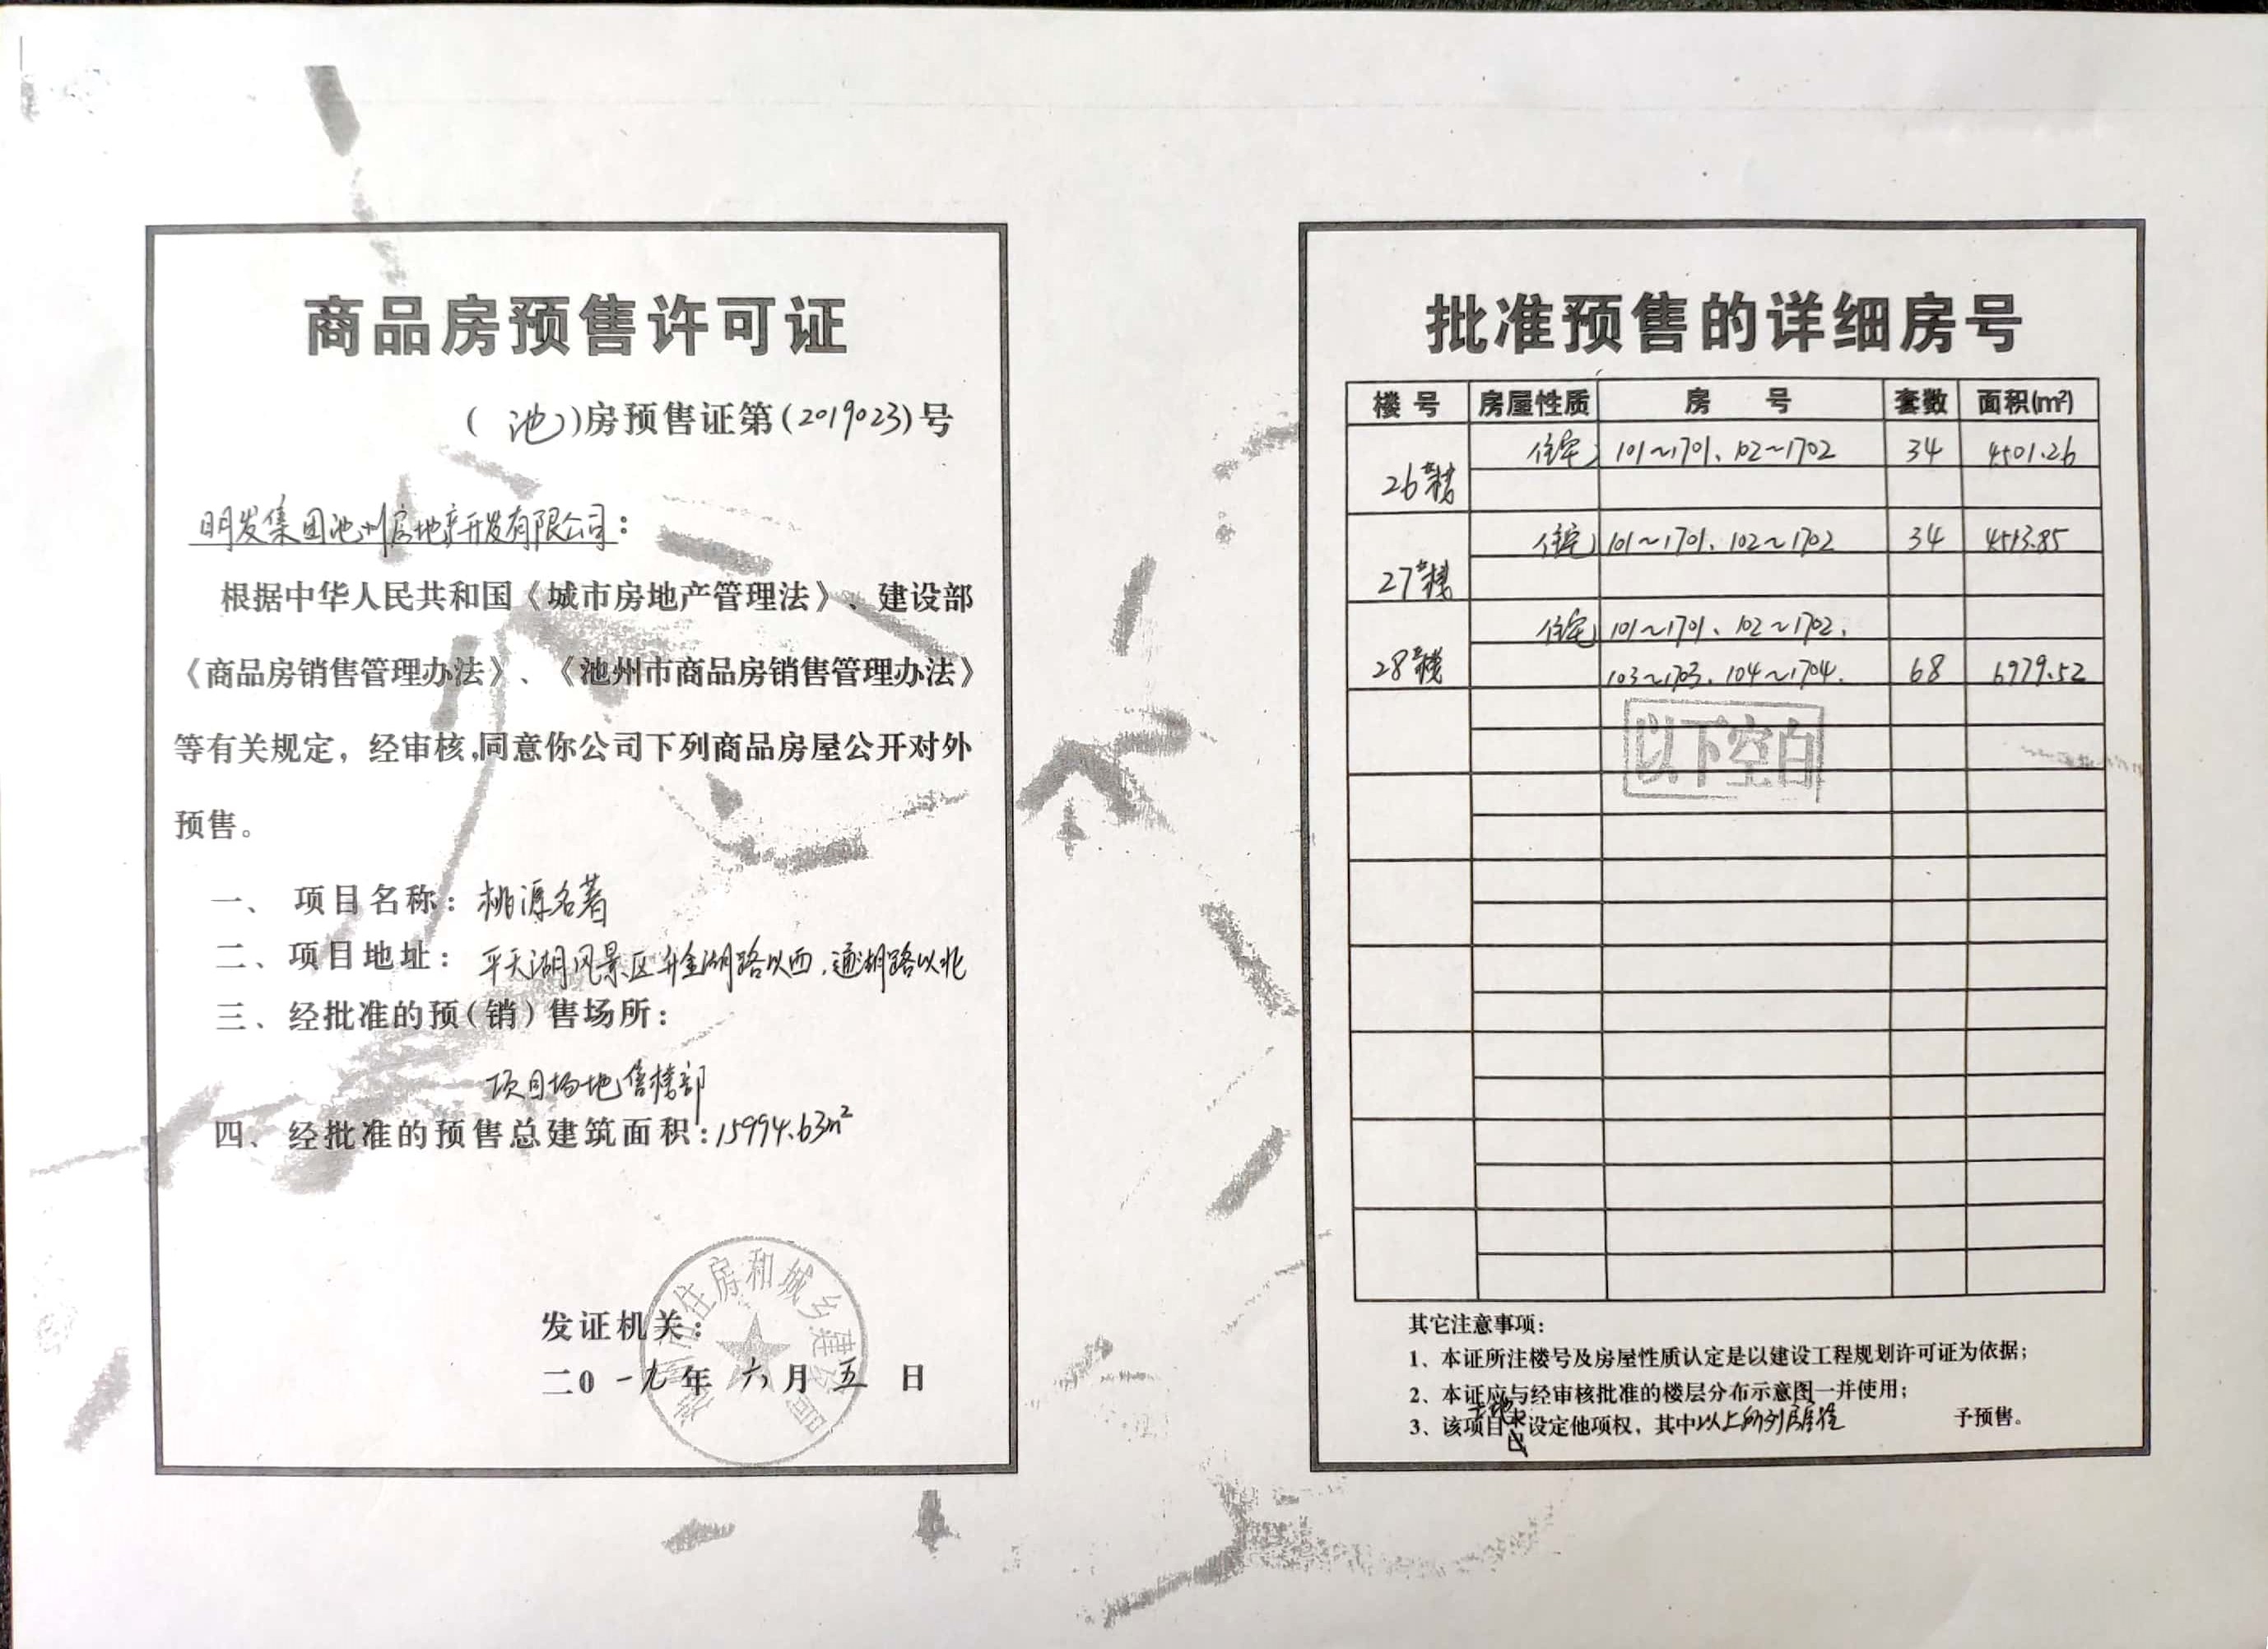 商品房预售许可证
(池)房预售证第(2019023)号
明发集团池州房地产开发有限公司:
根据中华人民共和国《城市房地产管理法》、建设部
《商品房销售管理办法》、《池州市商品房销售管理办法》
等有关规定，经审核,同意你公司下列商品房屋公开对外
预售。
一、项目名称:桃源名著
二、项目地址:平天湖风景区升金湖路以西,通湖路以北
三、经批准的预(销)售场所:
项目场地售楼部
四、经批准的预售总建筑面积:15994.63m²
发证机关:
二0一九年六月五日
池州市住房和城乡建设局
批准预售的详细房号
楼号 房屋性质 房号 套数 面积(m²)
26#楼 住宅 101~1701、102~1702 34 4501.26
27#楼 住宅 101~1701、102~1702 34 4513.85
28#楼 住宅 101~1701、102~1702、
103~1703、104~1704. 68 6979.52
以下空白
其它注意事项:
1、本证所注楼号及房屋性质认定是以建设工程规划许可证为依据;
2、本证应与经审核批准的楼层分布示意图一并使用;
3、该项目土地未设定他项权，其中以上所列房屋准予预售。